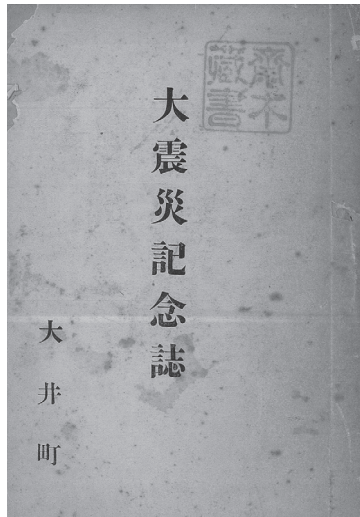 齋木
藏書
大震災記念誌
大井町